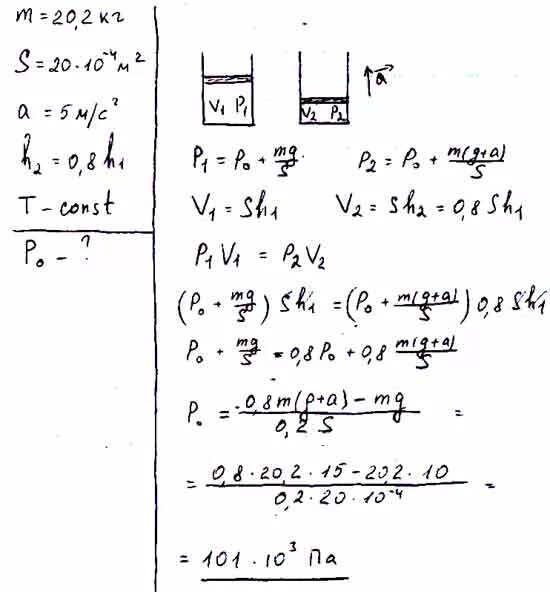 m = 20,2 кг
S = 20·10⁻⁴ м²
a = 5 м/с²
h₂ = 0,8 h₁
T - const
P₀ - ?
V₁ P₁
V₂ P₂
a
P₁ = P₀ + mg/S
P₂ = P₀ + m(g+a)/S
V₁ = Sh₁
V₂ = Sh₂ = 0,8 Sh₁
P₁ V₁ = P₂ V₂
(P₀ + mg/S) Sh₁ = (P₀ + m(g+a)/S) 0,8 Sh₁
P₀ + mg/S = 0,8 P₀ + 0,8 m(g+a)/S
P₀ = 0,8 m(g+a) - mg / 0,2 S =
= 0,8·20,2·15 - 20,2·10 / 0,2·20·10⁻⁴ =
= 101·10³ Па